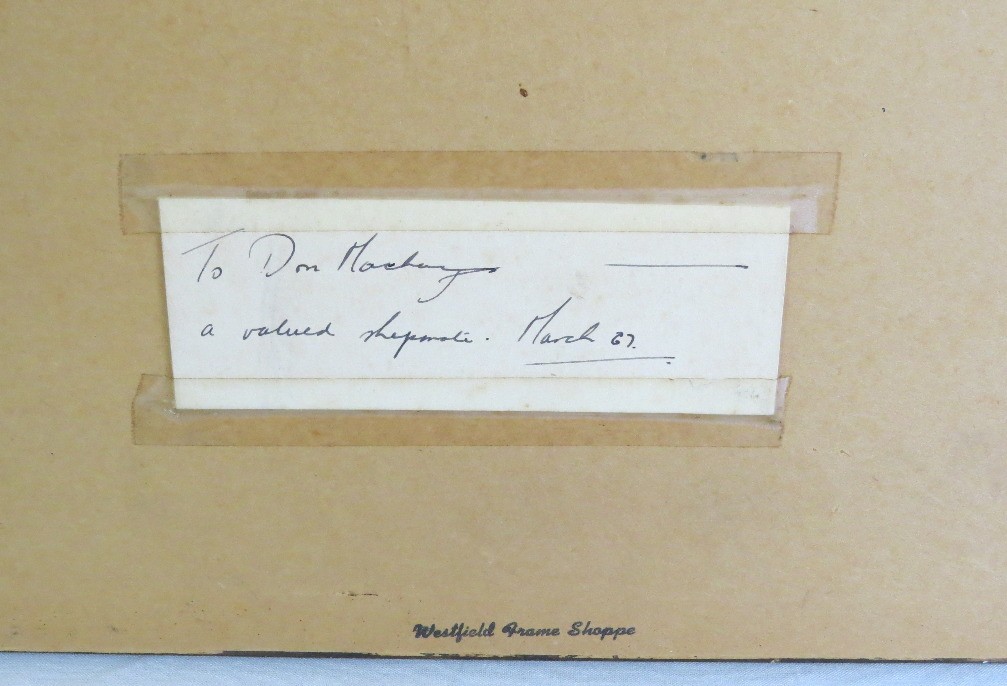 To Don Mackay
a valued shipmate. March 67.
Westfield Frame Shoppe